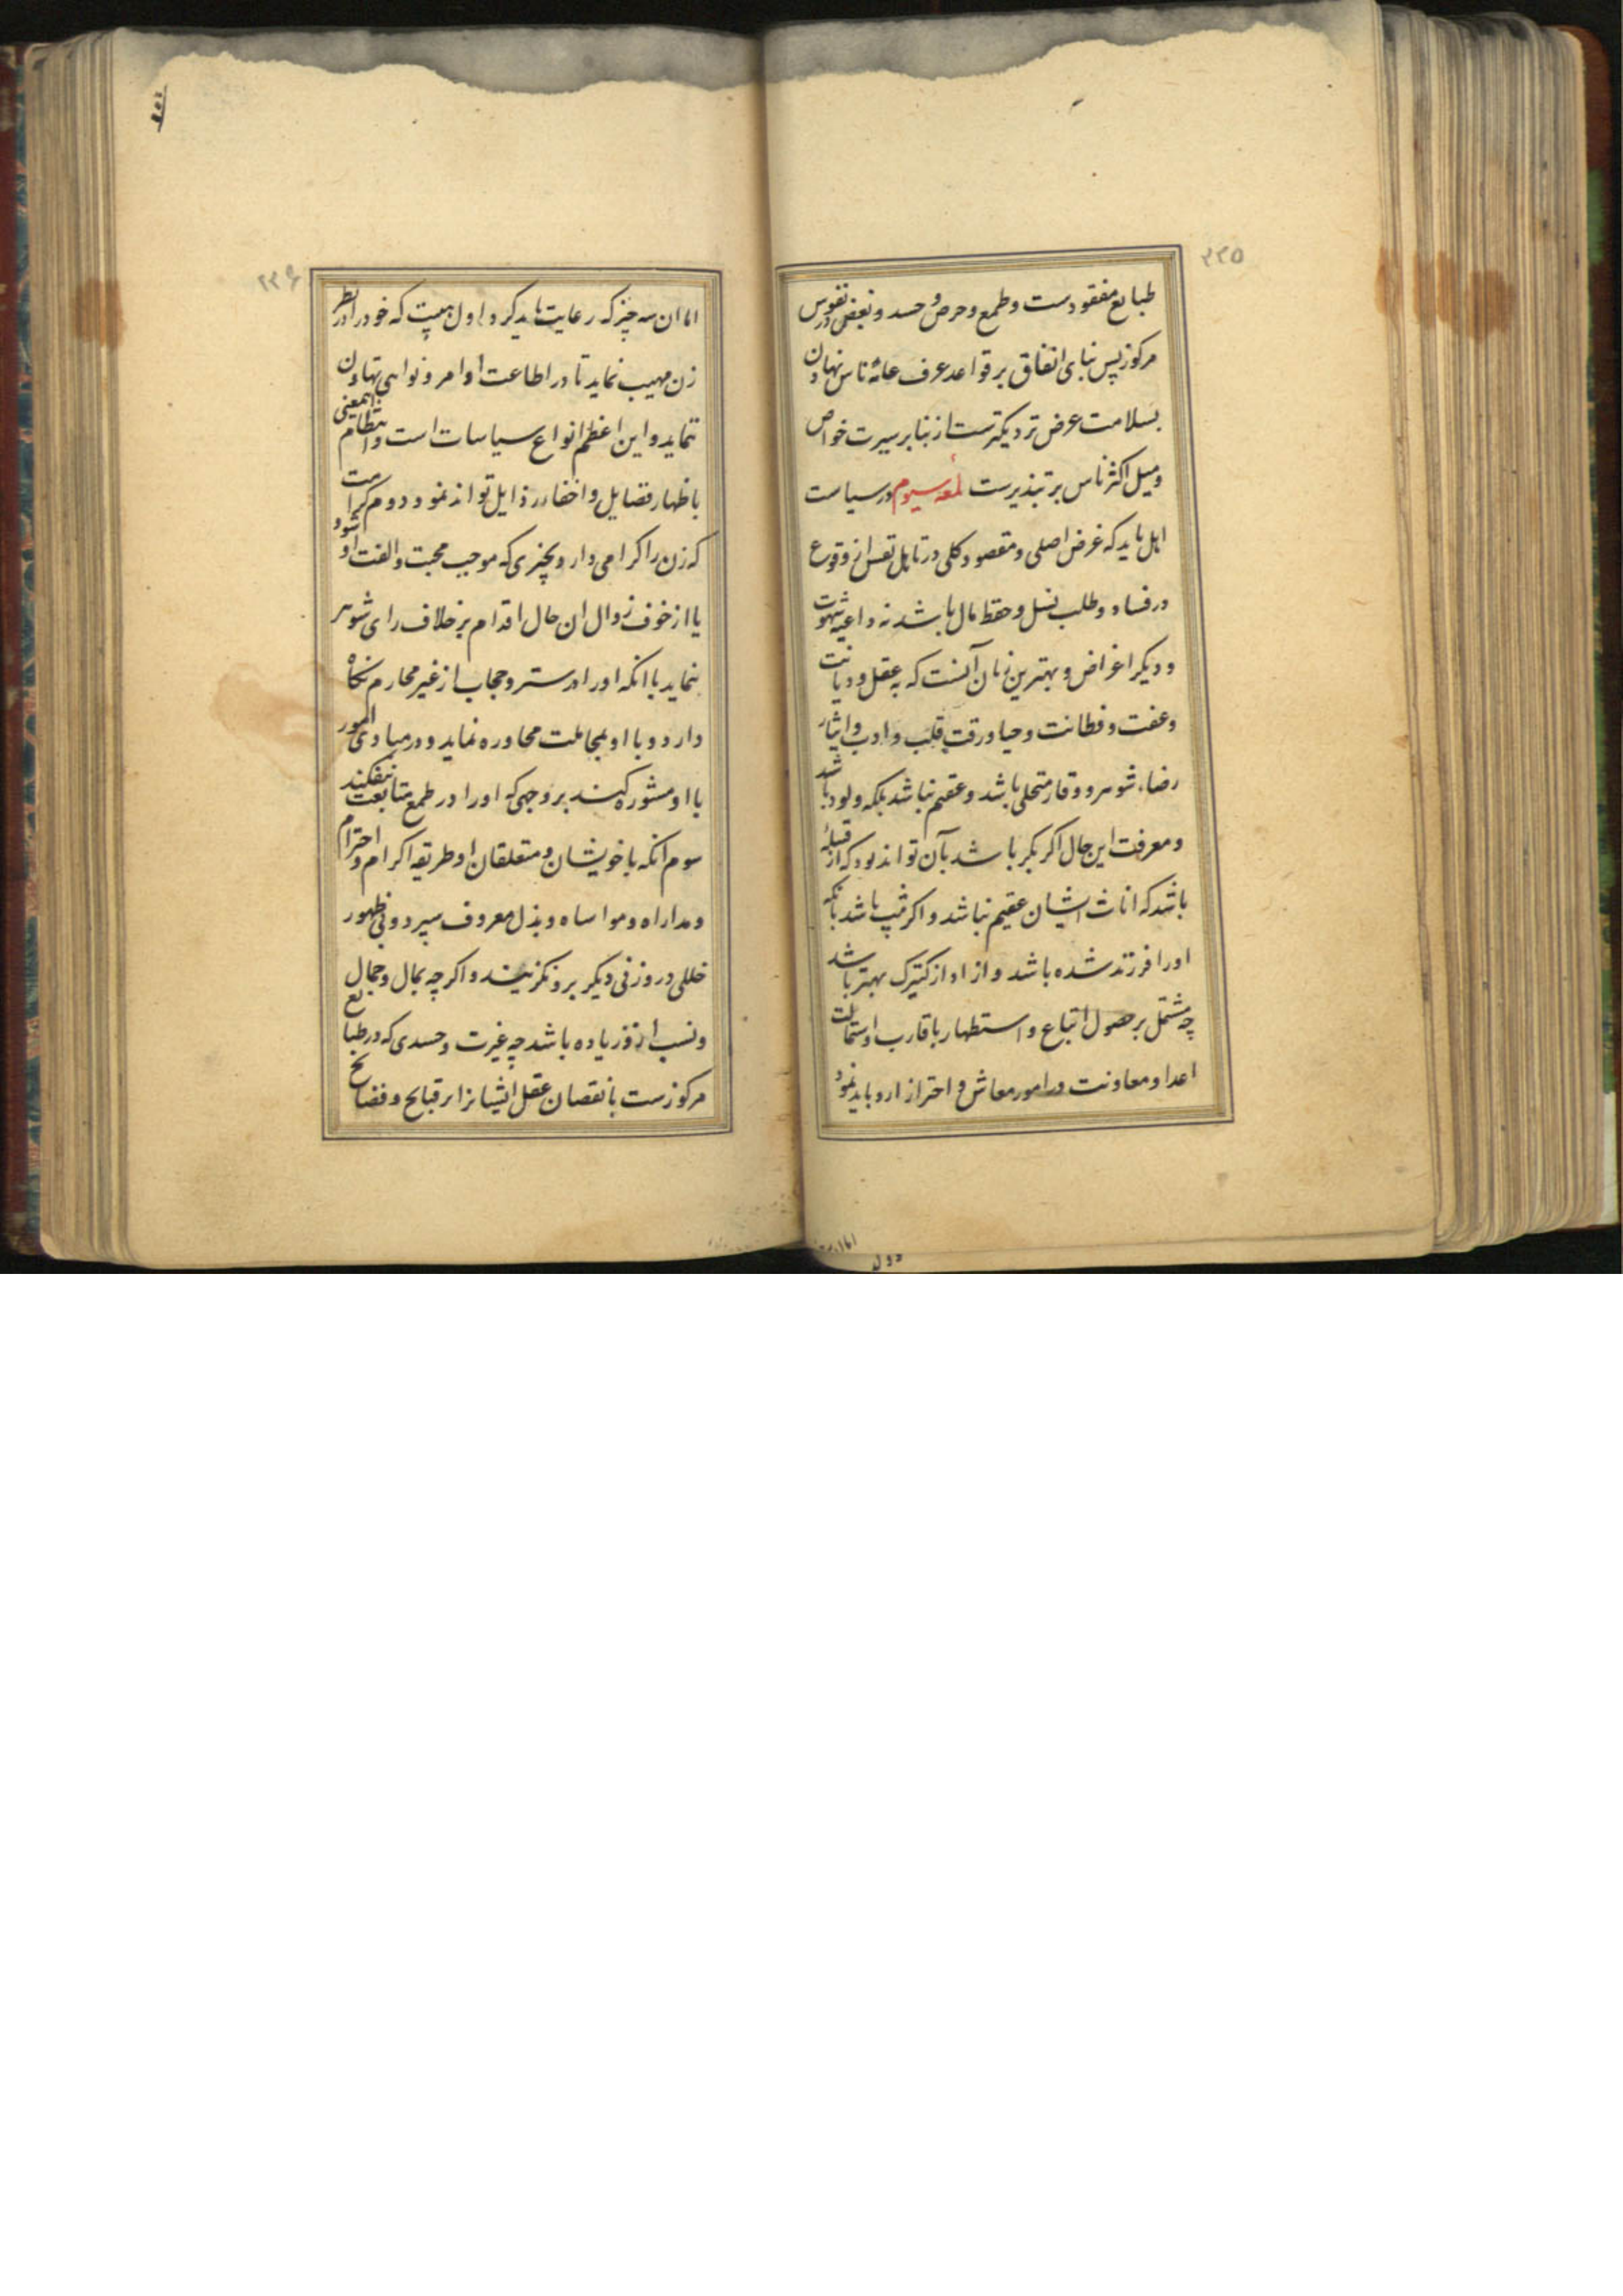 ۲۳۵
طبایع مفقودست و طمع و حرص و حسد و بغض در نفوس
مرکوز پس بنای انفاق بر قواعد عرف عامه ناس نهادن
بسلامت عرض نزدیکترست از بنا بر سیرت خواص
و میل اکثر ناس بر تبذیرست لمعه سیوم در سیاست
اهل باید که غرض اصلی و مقصود کلی در تاهل تعسر از وقوع
در فساد و طلب نسل و حفظ مال باشد نه داعیه شهوت
و دیگر اغراض و بهترین زنان آنست که به عقل و دیانت
و عفت و فطانت و حیا و رقت قلب و ادب و ایثار
رضاء شوهر و وقار متحلی باشد و عقیم نباشد بلکه ولود باشد
و معرفت این حال اگر بکر باشد بآن تواند بود که از قبیله
باشد که اناث ایشان عقیم نباشد و اگر ثیب باشد بآنکه
اورا فرزند شده باشد و از اداز کنیزک بهتر باشد
چه مشتمل بر حصول اتباع و استظهار باقارب و استمالت
اعدا و معاونت در امور معاش و احتراز ازو باید نمود
۲۳۶
اما ان سه چیز که رعایت باید کرد اول هیبت که خود را در نظر
زن مهیب نماید تا در اطاعت اوامر و نواهی تهاون
ننماید و این اعظم انواع سیاسات است و انتظام اینمعنی
باظهار فضایل و اخفاء رذایل تواند نمود دوم کرامت
که زن را گرامی دارد بچیزی که موجب محبت و الفت او شود
یا از خوف زوال ان حال اقدام بر خلاف رای شوهر
ننماید با انکه اورا در ستر و حجاب از غیر محارم نگاه
دارد و با او بمجاملت محاوره نماید و در مبادی امور
با او مشوره کند بر وجهی که اورا در طمع متابعت نیفکند
سوم انکه با خویشان و متعلقان او طریقه اکرام و احترام
و مداراه و مواساه و بذل معروف سپرد و بی ظهور
خللی در و زنی دیگر برو نگزیند و اگر چه بمال و جمال
و نسب از و زیاده باشد چه غیرت و حسدی که در طبایع
مرکوزست با نقصان عقل ایشانرا بر قبایح و فضایح